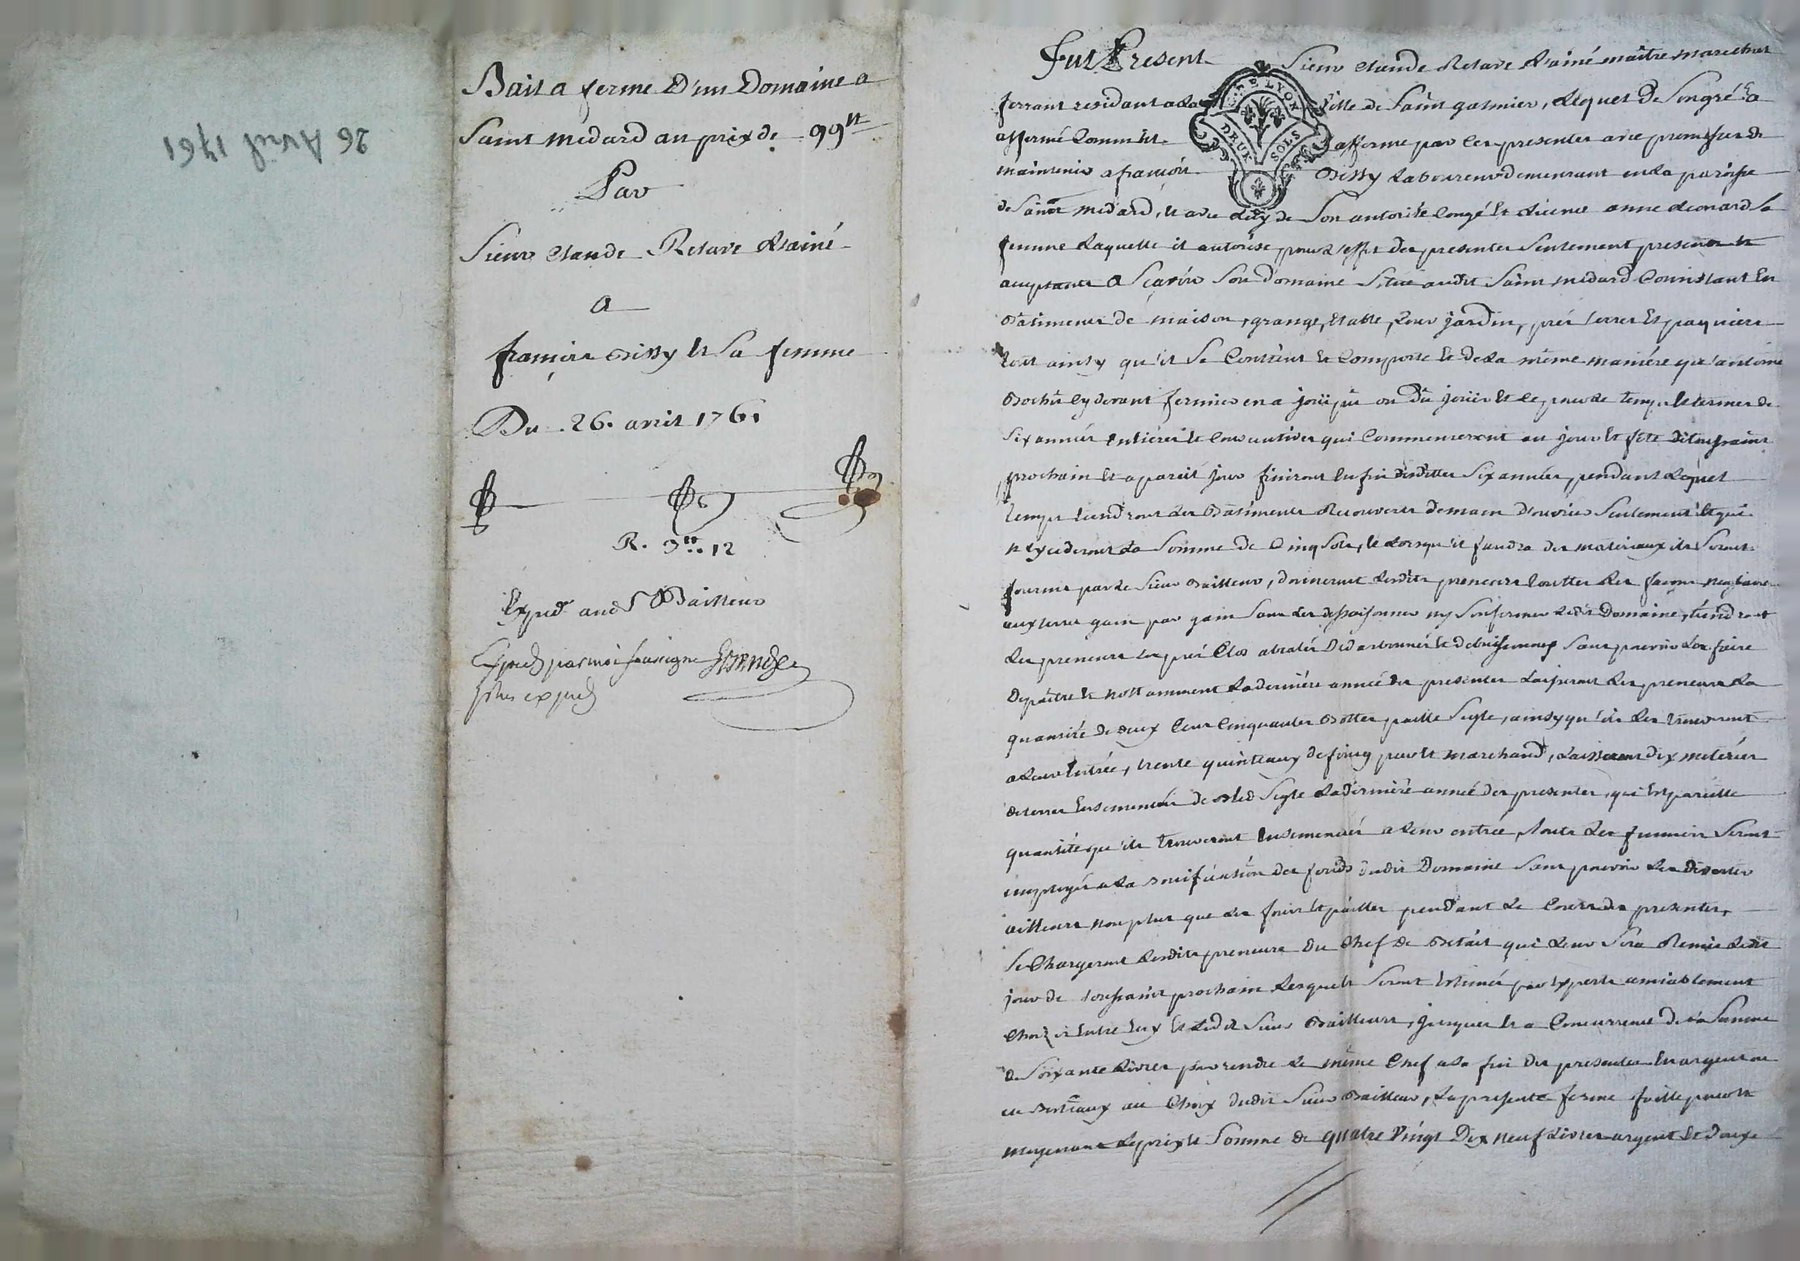 26 Avril 1761
Bail a ferme D'un Domaine a
Saint medard au prix de 99tt
Par
Sieur Claude Retave L'ainé
A
françois Bissy et Sa femme
Du 26. avril 1761
R. 3tt.. 12
Exped. aud S Bailleur
Expedié par moi soussigné
plus exped
Fut Present Sieur Claude Retave L'ainé maitre marechal
ferrant residant a La ville de Saint galmier, Lequel De Son gré a
affermé Comm'il afferme par Ces presentes avec promesse de
maintenir a françois Bissy Laboureur demeurant en La paroisse
de Saint medard, et avec Luy de Son autorité Congé et Licence anne Leonard Sa
femme Laquelle il autorise pour L'effet des presentes Seulement presents et
acceptants A Sçavoir Son Domaine Situé audit Saint medard Consistant En
Batiments de maison, grange, Etable, Cour jardin, prés terres Et paquiers
tout ainsy qu'il Se Contient et Comporte et de La même maniére qu'antoine
cy devant fermier en a joüi pû ou Dû joüir Et ce pour le temps et termes de
Six années entiéres et Consecutives qui Commenceront au jour et fête de toussaint
prochain Et a pareil jour finiront En fin desdittes Six années, pendant Lequel
temps tiendront Les Bâtiments Recouverts de main D'ouvrier Seulement et qui
n'Excederont La Somme de Cinq Sols, et Lorsqu'il faudra des materiaux ils Seront
fournis par Le Sieur Bailleur, donneront Lesdits preneurs touttes Les façons necessaires
aux terres gain par gain Sans Les dessaisonner ny Sousfermer Ledit Domaine, tiendront
Les preneurs Les prés Clos Sans pouvoir Les faire
Depaître et nottamment La derniére année des presentes Laisseront Les preneurs La
quantité de deux Cens Cinquantes Bottes paille Segle, ainsy qu'ils Les trouveront
a Leur Entrée, trente quintaux de foing poids de marchand, Laisseront dix meterées
de terres Ensemencées de Bled Segle La derniére année des presentes, qui Est pareille
quantité qu'ils trouveront Ensemencées a Leur entrée, touts Les fumiers Seront
employés a La Bonification des fonds dudit Domaine Sans pouvoir Les divertir
ailleurs non plus que Les foins Et pailles pendant Le Cours des presentes,
Se Chargeront Lesdits preneurs Du Chef de Betail qui Leur Sera Remis Ledit
jour de toussaint prochain Lesquels Seront Estimés par Experts amiablement
Choisis Entre Eux Et Ledit Sieur Bailleur, jusques et a Concurrence de La Somme
de Soixante Livres pour rendre Le même Chef a La fin des presentes En argent ou
en Bestiaux au Choix dudit Sieur Bailleur, La presente ferme faitte pour et
moyennant Le prix et Somme de quatre Vingt Dix neuf Livres argent Et douze
G. DE LYON
DEUX SOLS